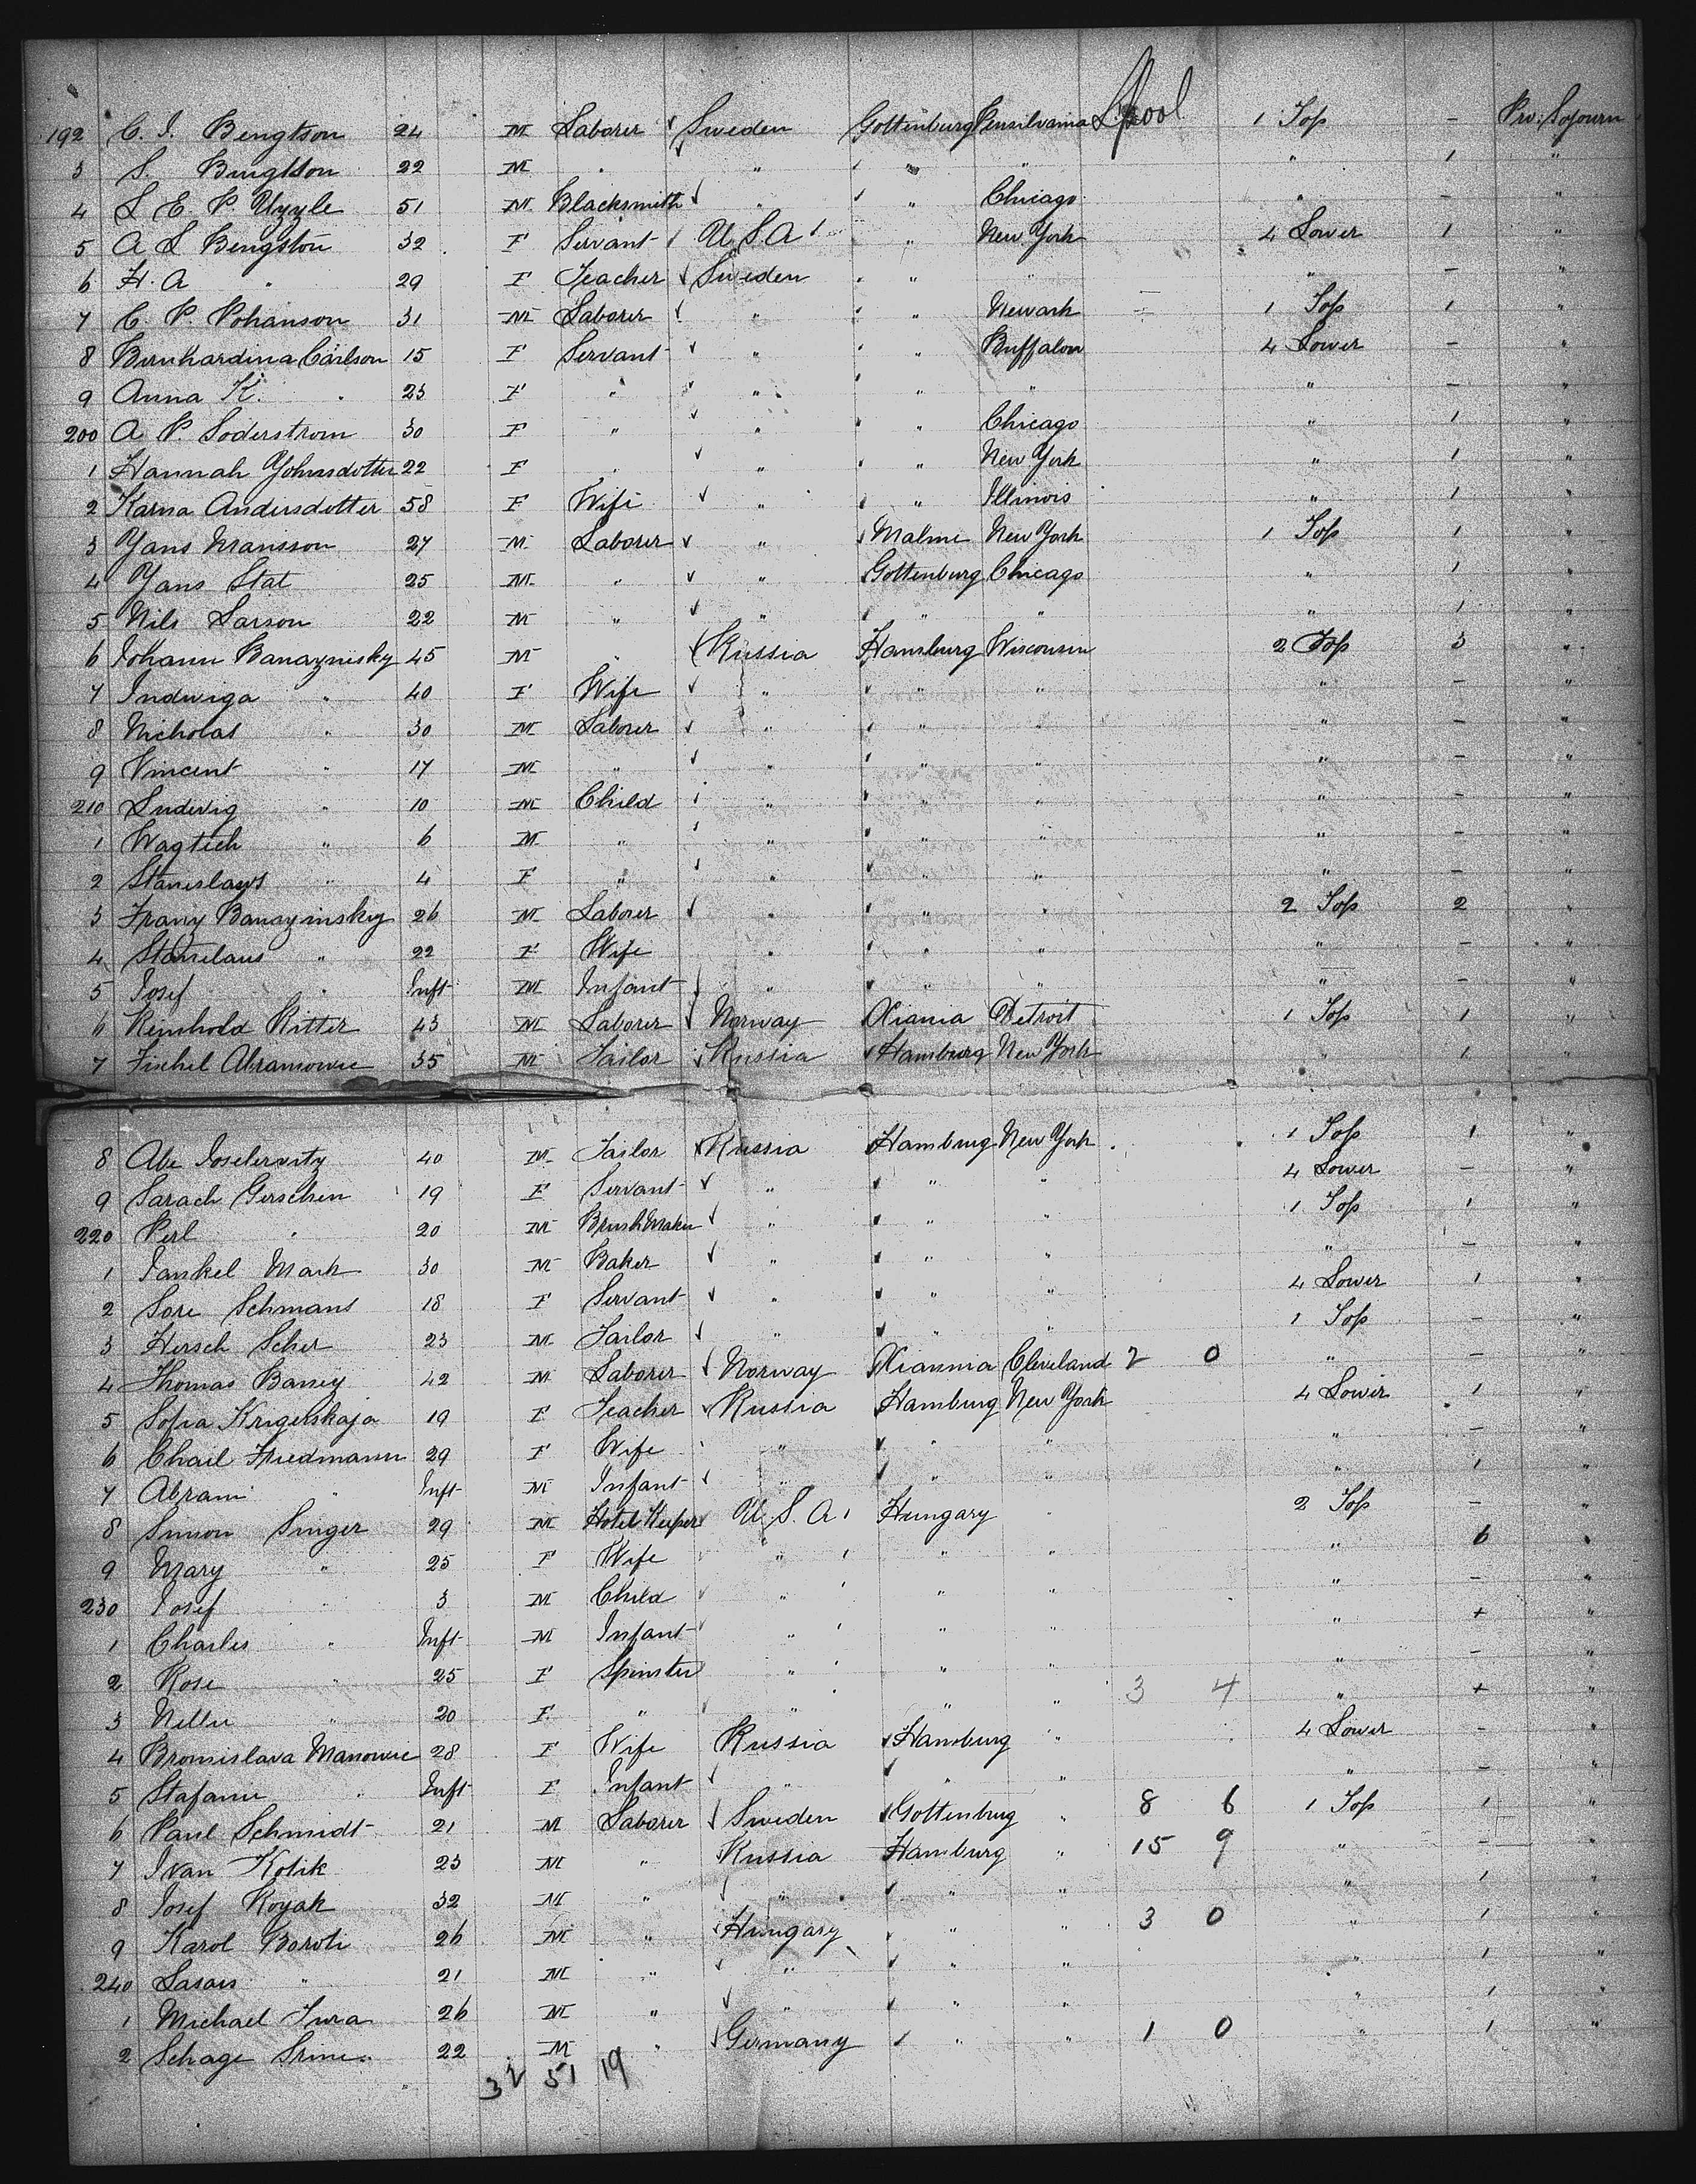 192 C. J. Bengtson 24 M Laborer Sweden Gottenburg Pensilvania L'pool 1 Top - Prv: Sojourn
3 S. Bengtson 22 M " " " " " 1 "
4 L E. P. Uzzle 51 M Blacksmith " " Chicago " - "
5 A L Bengston 32 F Servant U S A " New York 4 Lower 1 "
6 H. A " 29 F Teacher Sweden " " " - "
7 C. P. Pohanson 31 M Laborer " " Newark 1 Top 1 "
8 Bernhardina Carlson 15 F Servant " " Buffalow 4 Lower - "
9 Anna K. " 23 F " " " " " - "
200 A P. Soderstrom 30 F " " " Chicago " 1 "
1 Hannah Yohnsdotter 22 F " " " New York " 1 "
2 Karna Andersdotter 58 F Wife " " Illinois " 1 "
3 Yans Mansson 27 M Laborer " Malme New York 1 Top 1 "
4 Yans Stat 25 M " " Gottenburg Chicago " 1 "
5 Nils Larson 22 M " " " " " 1 "
6 Johann Banaznisky 45 M " Russia Hamburg Wisconsin 2 Top 3 "
7 Indwiga " 40 F Wife " " " " - "
8 Nicholas " 30 M Laborer " " " " - "
9 Vincent " 17 M " " " " " - "
210 Ludwig " 10 M Child " " " " - "
1 Wagtich " 6 M " " " " " - "
2 Stanislaws " 4 F " " " " " - "
3 Franz Banazinsky 26 M Laborer " " " 2 Top 2 "
4 Stanilaus " 22 F Wife " " " " - "
5 Josef " Inft M Infant " " " " - "
6 Reinhold Ritter 43 M Laborer Norway Xiania Detroit 1 Top 1 "
7 Fischel Abramowic 35 M Tailor Russia Hamburg New York " 1 "
8 Abe Joselervitz 40 M Tailor Russia Hamburg New York 1 Top 1 "
9 Sarach Gerschen 19 F Servant " " " 4 Lower - "
220 Perl " 20 M Brush Maker " " " 1 Top 1 "
1 Jankel Mark 30 M Baker " " " " - "
2 Sore Schmans 18 F Servant " " " 4 Lower 1 "
3 Hersch Scher 23 M Tailor " " " 1 Top - "
4 Thomas Barney 42 M Laborer Norway Xiannia Cleveland 2 0 " - "
5 Sofia Krigerskaja 19 F Teacher Russia Hamburg New York 4 Lower 1 "
6 Chail Friedmann 29 F Wife " " " " - "
7 Abram " Inft M Infant " " " " 1 "
8 Simon Singer 29 M Hotel Keeper U. S. A. Hungary " 2 Top - "
9 Mary " 25 F Wife " " " " 6 "
230 Josef " 3 M Child " " " " - "
1 Charles " Inft M Infant " " " " + "
2 Rose " 25 F Spinster " " " " - "
3 Nellie " 20 F " " " " 3 4 " + "
4 Bronislava Manowic 28 F Wife Russia Hamburg " 4 Lower - "
5 Stafanie " Inft F Infant " " " " - "
6 Paul Schmidt 21 M Laborer Sweden Gottenburg " 8 6 1 Top 1 "
7 Ivan Kotik 23 M " Russia Hamburg " 15 9 " - "
8 Josef Koyak 32 M " " " " " 1 "
9 Karol Boroti 26 M " Hungary " " 3 0 " 1 "
240 Lasars " 21 M " " " " " 1 "
1 Michael Jura 26 M " " " " " 1 "
2 Schage Srine 22 M " Germany " " 1 0 " 1 "
32 51 19